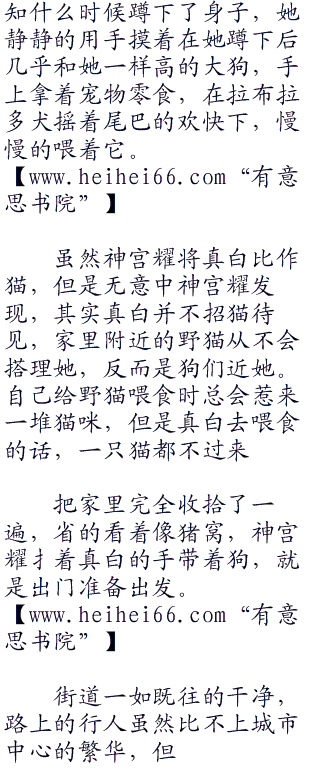 知什么时候蹲下了身子，她
静静的用手摸着在她蹲下后
几乎和她一样高的大狗，手
上拿着宠物零食，在拉布拉
多犬摇着尾巴的欢快下，慢
慢的喂着它。
【www.heihei66.com“有意
思书院”】
虽然神宫耀将真白比作
猫，但是无意中神宫耀发
现，其实真白并不招猫待
见，家里附近的野猫从不会
搭理她，反而是狗们近她。
自己给野猫喂食时总会惹来
一堆猫咪，但是真白去喂食
的话，一只猫都不过来
把家里完全收拾了一
遍，省的看着像猪窝，神宫
耀扌着真白的手带着狗，就
是出门准备出发。
【www.heihei66.com“有意
思书院”】
街道一如既往的干净，
路上的行人虽然比不上城市
中心的繁华，但